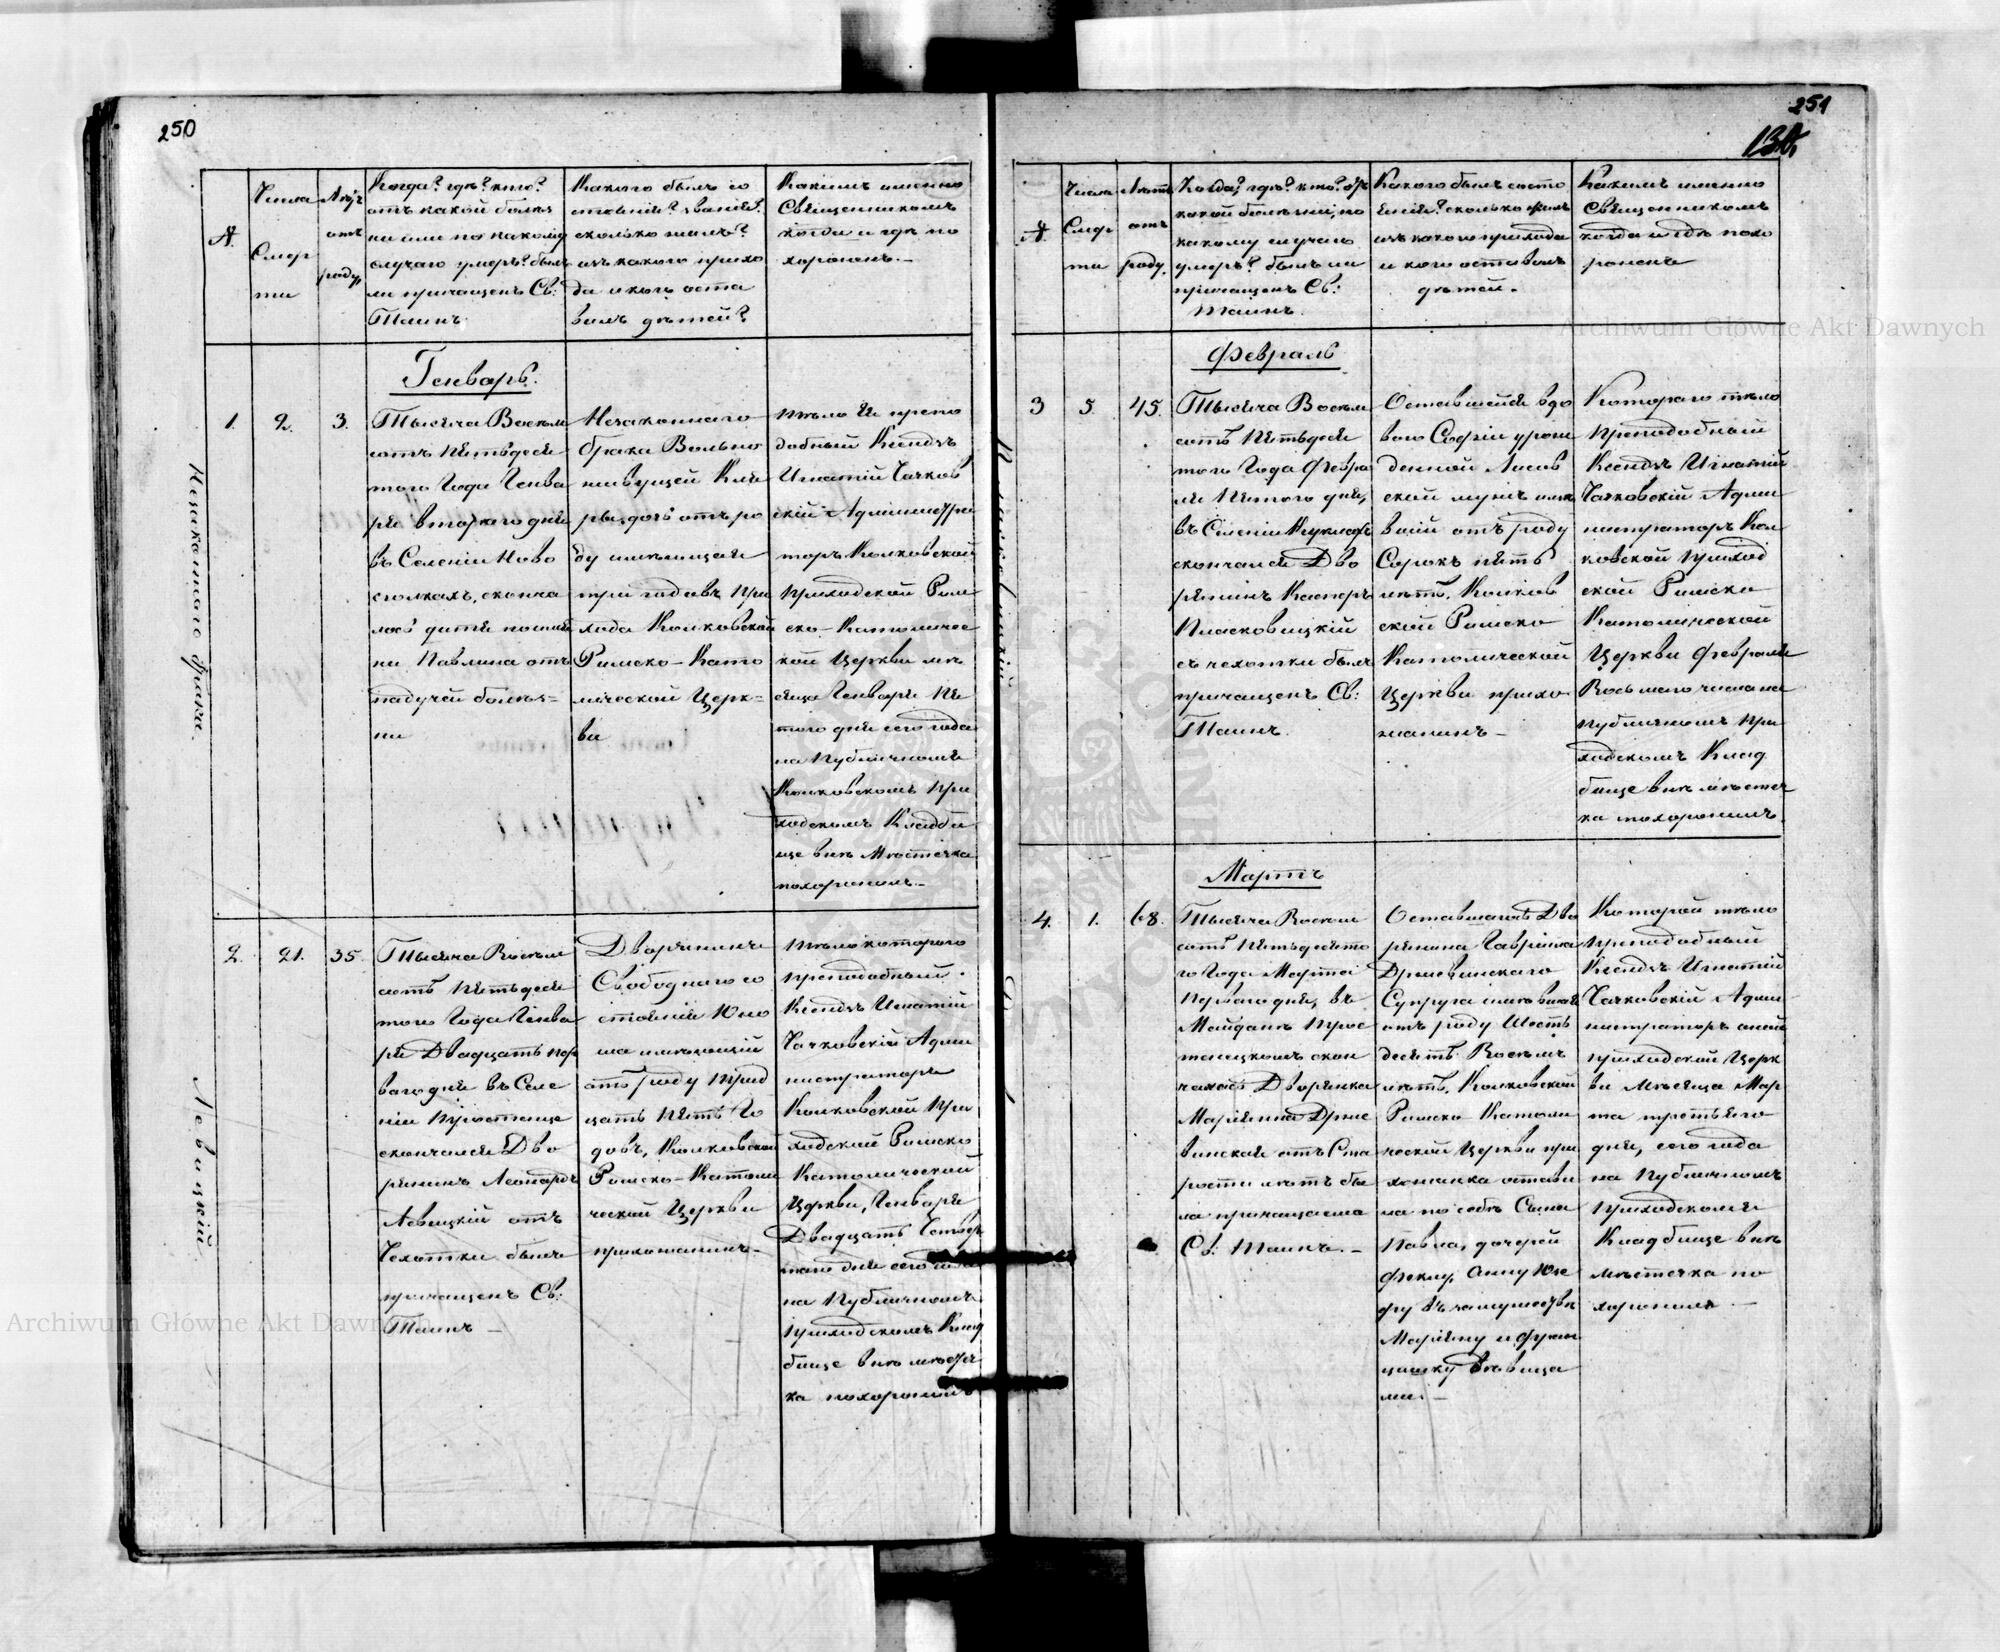 250
№
Числа
Смер
ти
Лѣтъ
отъ
роду
Когда? гдѣ? кто?
отъ какой болѣз
ни или по какому
случаю умеръ? былъ
ли причащенъ Св:
Таинъ
Какого былъ со
стоянія? званія?
сколько жилъ?
изъ какого прихо
да и кого оста
вилъ дѣтей?
Какимъ именно
Священникомъ
когда и гдѣ по
хороненъ.
Генварь.
Незаконного брака
1.
2.
3.
Тысяча Восем
сотъ Пятьдеся
того Года Генва
ря втораго дня
въ Селеніи Ново
сюлкахъ, сконча
лось дитя
Павлина отъ
падучей болѣз=
ни
Незаконнаго
брака Вольно
живущей Кля
ры, дочь отъ ро
ду имѣющая
три годовъ При
хода Колковской
Римско-Като
лической Церк=
ви
тѣло ея препо
добный Ксендзъ
Игнатій Чачков
скій Администра
торъ Колковской
Приходской Рим
ско-Католичес
кой Церкви мѣ
сяца Генваря Пя
того дня сего года
на Публичномъ
Колковскомъ При
ходскомъ Кладби
ще внѣ Мѣстечка
похоронилъ.
Левицкій
2.
21.
35.
Тысяча Восем
сотъ Пятьдеся
того Года Генва
ря Двадцать пер
ваго дня въ Селе
ніи Простаще
скончался Дво
рянинъ Леонардъ
Левицкій отъ
Чахотки былъ
причащенъ Св:
Таинъ
Дворянина
Свободнаго со
стоянія Юно
ша имѣющій
отъ роду трид
цать пять Го
довъ, Колковской
Римско-Католи
ческой Церкви
прихожанинъ
тѣло котораго
преподобный
Ксендзъ Игнатій
Чачковскій Адми
нистраторъ
Колковской При
ходской Римско
Католической
Церкви, Генваря
Двадцать Четвер
таго дня сего года
на Публичномъ
приходскомъ Клад
бище внѣ мѣстеч
ка похоронилъ
251
130.
№
Числа
Смер
ти
Лѣтъ
отъ
роду
Когда? гдѣ? кто? отъ
какой болѣзни, по
какому случаю
умеръ? былъ ли
причащенъ Св:
Таинъ.
Какого былъ состо
янія? сколько жилъ
изъ какого прихода
и кого оставилъ
дѣтей.
Какимъ именно
Священникомъ
когда и гдѣ похо
роненъ
Февраль
3
5.
45.
Тысяча Восем
сотъ Пятьдеся
того Года Февра
ля Пятого дня,
въ Селеніи
скончался Дво
рянинъ Касперъ
Пласковицкій
съ чахотки былъ
причащенъ Св:
Таинъ.
Оставшейся вдо
вою Софіи урож
денной Лисов
ской мужъ имѣ
вшій отъ роду
Сорокъ пять
лѣтъ, Колков
ской Римско
Католической
Церкви прихо
жанинъ
Котораго тѣло
Преподобный
Ксендзъ Игнатій
Чачковскій Адми
нистраторъ Кол
ковской Приход
ской Римско
Католической
Церкви Февраля
Восьмаго числа на
публичномъ При
ходскомъ Клад
бище внѣ мѣстеч
ка похоронилъ.
Мартъ
4.
1.
68.
Тысяча Восем
сотъ Пятьдесято
го Года Марта
Перваго дня, въ
Майданѣ Прос
тенецкомъ скон
чалась Дворянка
Маріянна Држе
винская отъ Ста
рости лѣтъ бы
ла причащаема
Св: Таинъ.
Оставшаяся Дво
рянина Гавріила
Држевинскаго
Супруга имѣвшая
отъ роду Шесть
десятъ Восемъ
лѣтъ, Колковской
Римско Католи
ческой Церкви при
хожанка остави
ла по себѣ Сына
Павла, дочерей
Феклу, Анну Юзе
фу въ замужествѣ
Маріяну и Фран
цишку дѣвица
ми.
Которой тѣло
преподобный
Ксендзъ Игнатій
Чачковскій Адми
нистраторъ оной
приходской Церк
ви мѣсяца Мар
та третьяго
дня, сего года
на Публичномъ
Приходскомъ
Кладбище внѣ
мѣстечка по
хоронилъ
Archiwum Główne Akt Dawnych
Archiwum Główne Akt Dawnych